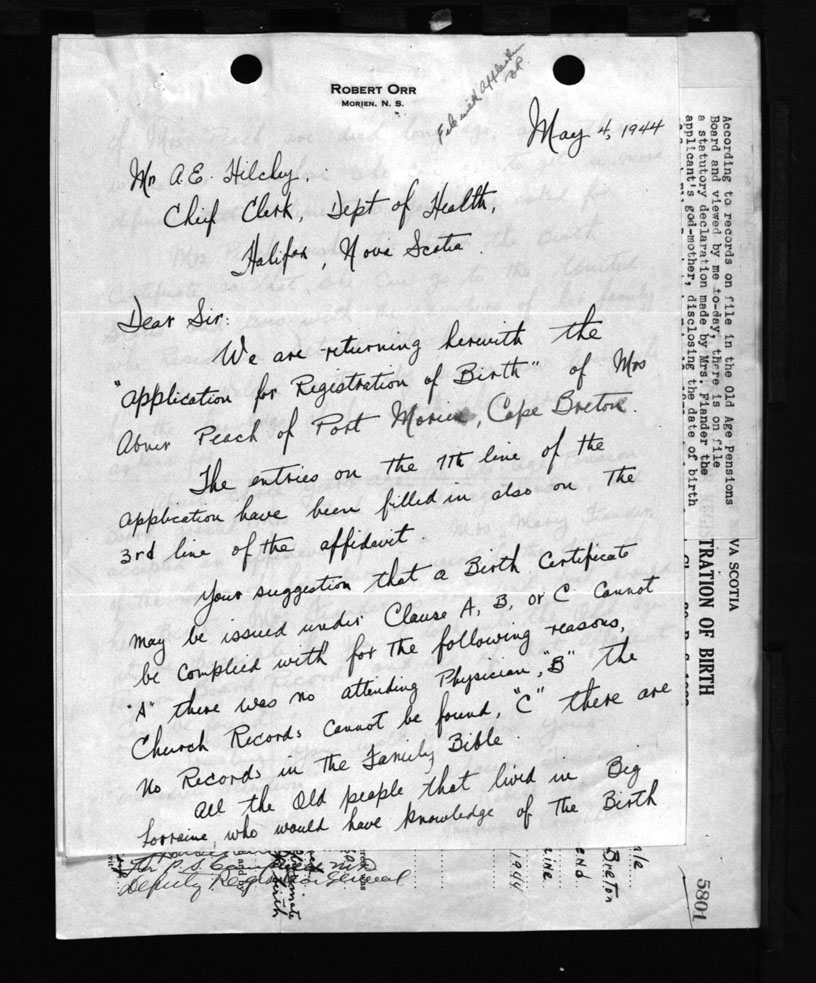 ROBERT ORR
MORIEN, N. S.
File with Application
May 4, 1944
Mr A.E. Hilchy,
Chief Clerk, Dept of Health,
Halifax, Nova Scotia.
Dear Sir:
We are returning herewith the
"application for Registration of Birth" of Mrs
Abner Peach of Port Morien, Cape Breton.
The entries on the 7th line of the
application have been filled in also on the
3rd line of the affidavit.
Your suggestion that a Birth Certificate
may be issued under Clause A, B, or C cannot
be complied with for the following reasons,
"A" there was no attending Physician, "B" the
Church Records cannot be found, "C" there are
no Records in the Family Bible.
All the Old people that lived in Big
Lorraine, who would have knowledge of the Birth
According to records on file in the Old Age Pensions
Board and viewed by me to-day, there is on file
a statutory declaration made by Mrs. Flander the
applicant's god-mother, disclosing the date of birth
VA SCOTIA
TRATION OF BIRTH
Breton
1944
5801
Deputy Registrar General